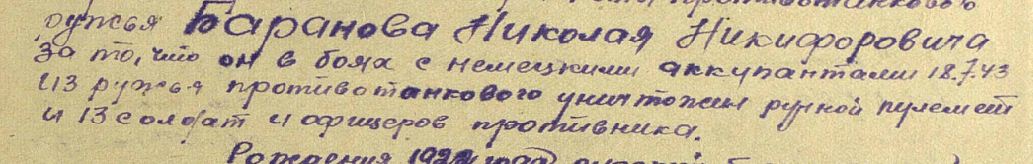 противотанкового
ружья Баранова Николая Никифоровича
за то, что он в боях с немецкими аккупантами 18.7.43
из ружья противотанкового уничтожил ручной пулемет
и 13 солдат и офицеров противника.
Рождения года